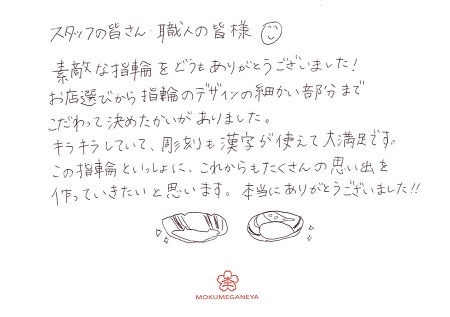 スタッフの皆さん・職人の皆様
素敵な指輪をどうもありがとうございました!
お店選びから指輪のデザインの細かい部分まで
こだわって決めたかいがありました。
キラキラしていて、彫刻も漢字が使えて大満足です。
この指輪といっしょに、これからもたくさんの思い出を
作っていきたいと思います。本当にありがとうございました!!
MOKUMEGANEYA